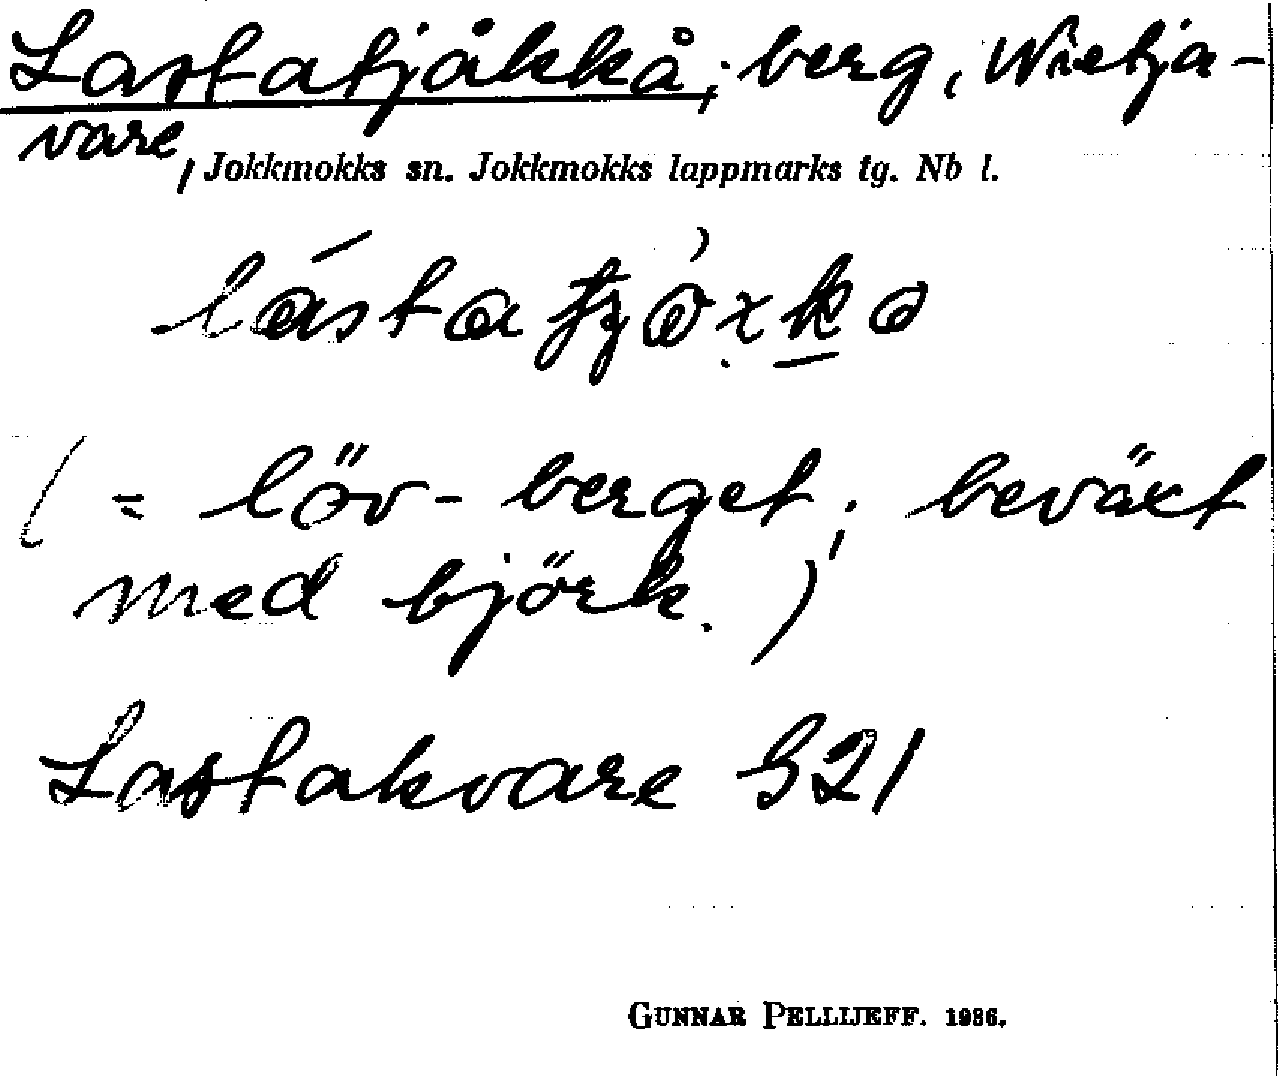 Lastatjåkkå; berg, Wietja-
vare, Jokkmokks sn. Jokkmokks lappmarks tg. Nb l.
(= löv-berget; beväxt
med björk.)
Lastakvare S21
GUNNAR PELLIJEFF. 1936.